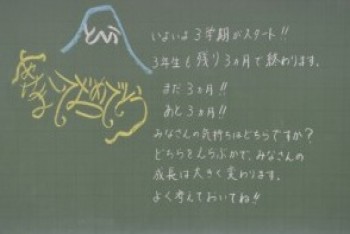 いよいよ3学期がスタート!!
3年生も残り3ヵ月で終わります。
まだ3ヵ月!!
あと3ヵ月!!
みなさんの気持ちはどちらですか?
どちらをえらぶかで、みなさんの
成長は大きく変わります。
よく考えておいてね!!